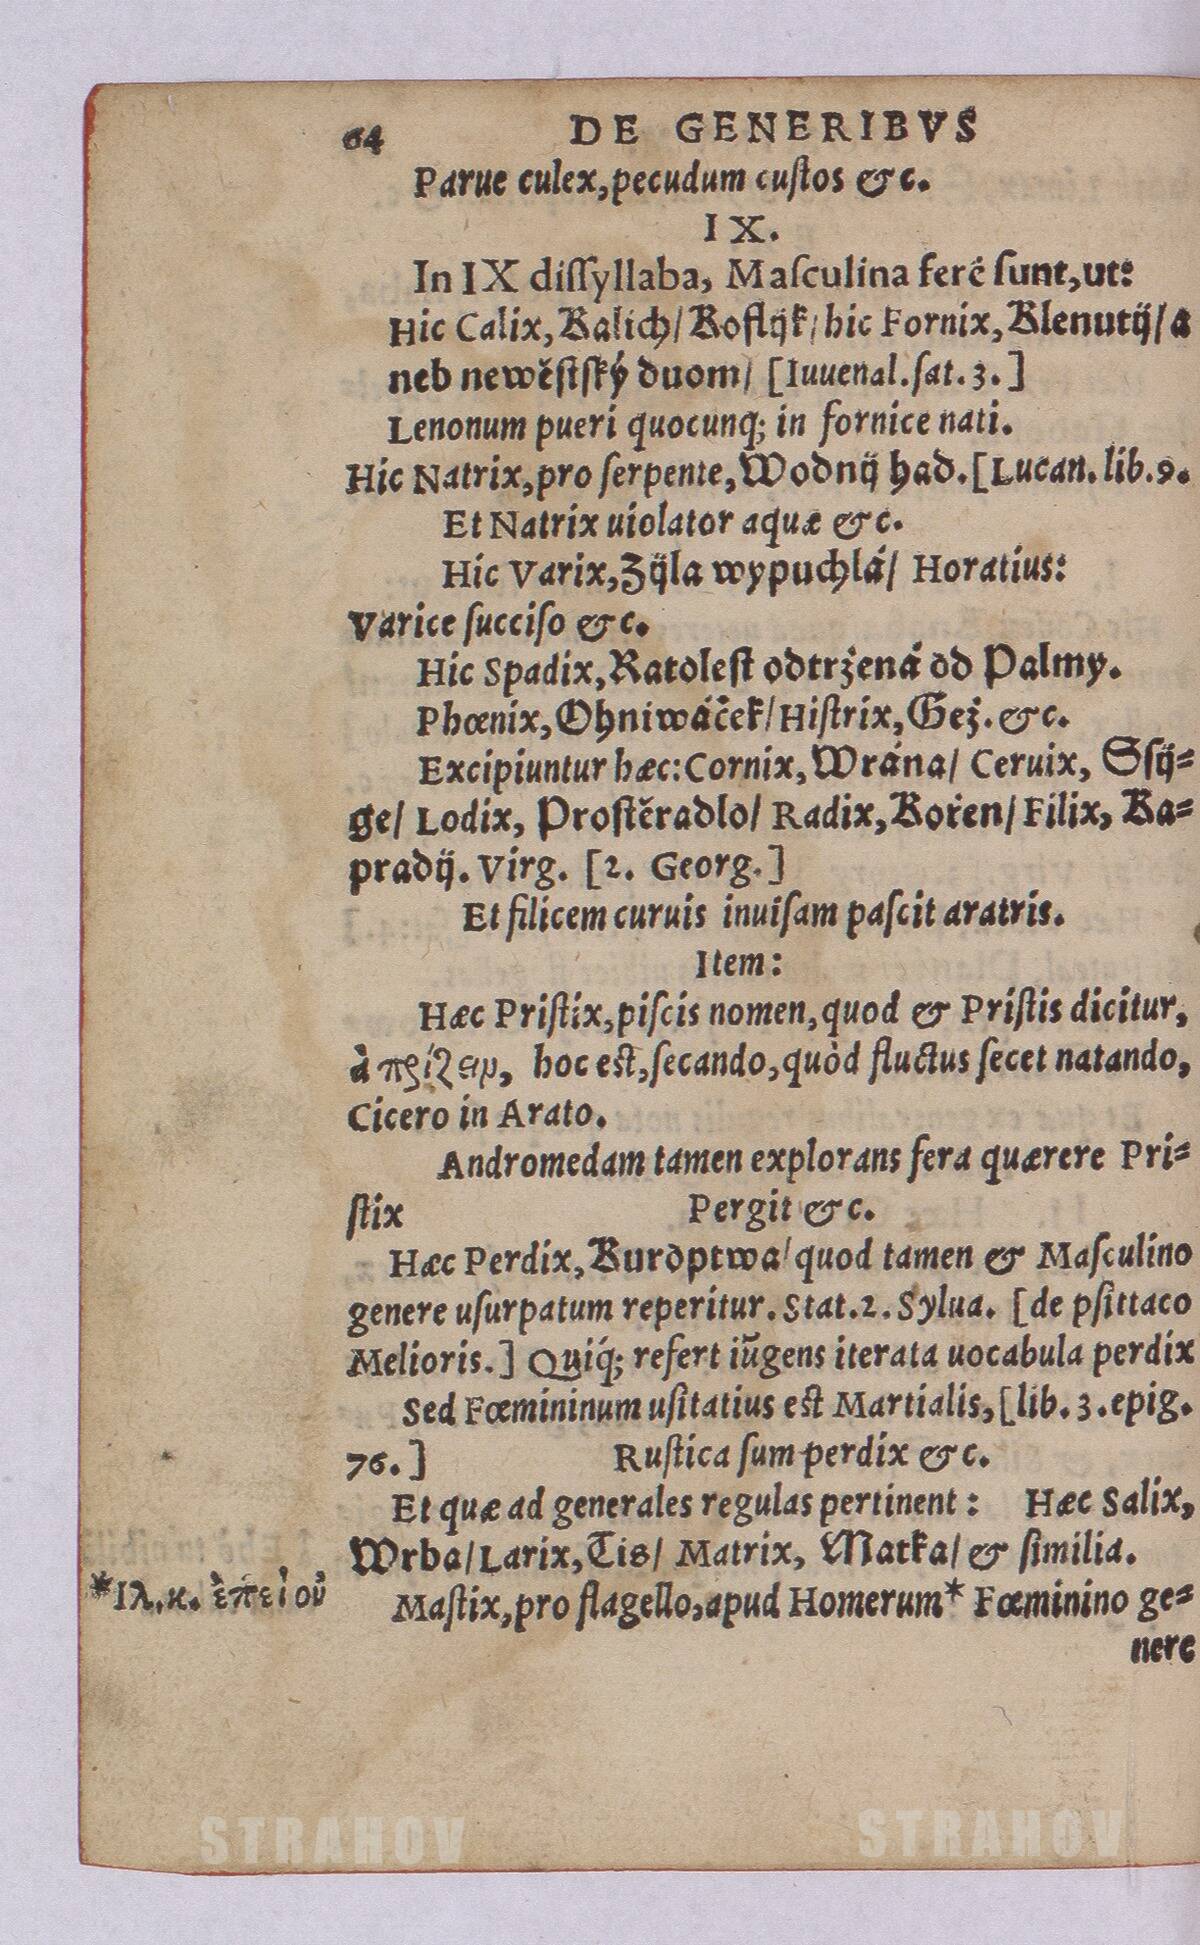 64 DE GENERIBVS
Parue culex, pecudum cuſtos &c.
IX.
In IX diſſyllaba, Maſculina ferè ſunt, ut:
Hic Calix, Kalich/ Koflijk/ hic Fornix, Klenutij/ a
neb newěſtſký duom/ [Iuuenal. ſat. 3.]
Lenonum pueri quocunq; in fornice nati.
Hic Natrix, pro ſerpente, Wodnij had. [Lucan. lib. 9.
Et Natrix uiolator aquæ &c.
Hic Varix, Žijla wypuchlá/ Horatius:
Varice ſucciſo &c.
Hic Spadix, Ratoleſt odtržená od Palmy.
Phœnix, Ohniwáček/ Hiſtrix, Gež. &c.
Excipiuntur hæc: Cornix, Wrána/ Ceruix, Sſij=
ge/ Lodix, Proſtěradlo/ Radix, Kořen/ Filix, Ka=
pradij. Virg. [2. Georg.]
Et filicem curuis inuiſam paſcit aratris.
Item:
Hæc Priſtix, piſcis nomen, quod & Priſtis dicitur,
à πρίζειν, hoc eſt, ſecando, quòd fluctus ſecet natando,
Cicero in Arato.
Andromedam tamen explorans fera quærere Pri=
ſtix Pergit &c.
Hæc Perdix, Kuroptwa/ quod tamen & Maſculino
genere uſurpatum reperitur. Stat. 2. Sylua. [de pſittaco
Melioris.] Quiq́; refert iũgens iterata uocabula perdix
Sed Fœmininum uſitatius eſt Martialis, [lib. 3. epig.
76.] Ruſtica ſum perdix &c.
Et quæ ad generales regulas pertinent: Hæc Salix,
Wrba/ Larix, Tis/ Matrix, Matka/ & ſimilia.
*Ιλ. κ. ἐπεὶ οὐ
Maſtix, pro flagello, apud Homerum* Fœminino ge=
nere
STRAHOV STRAHOV